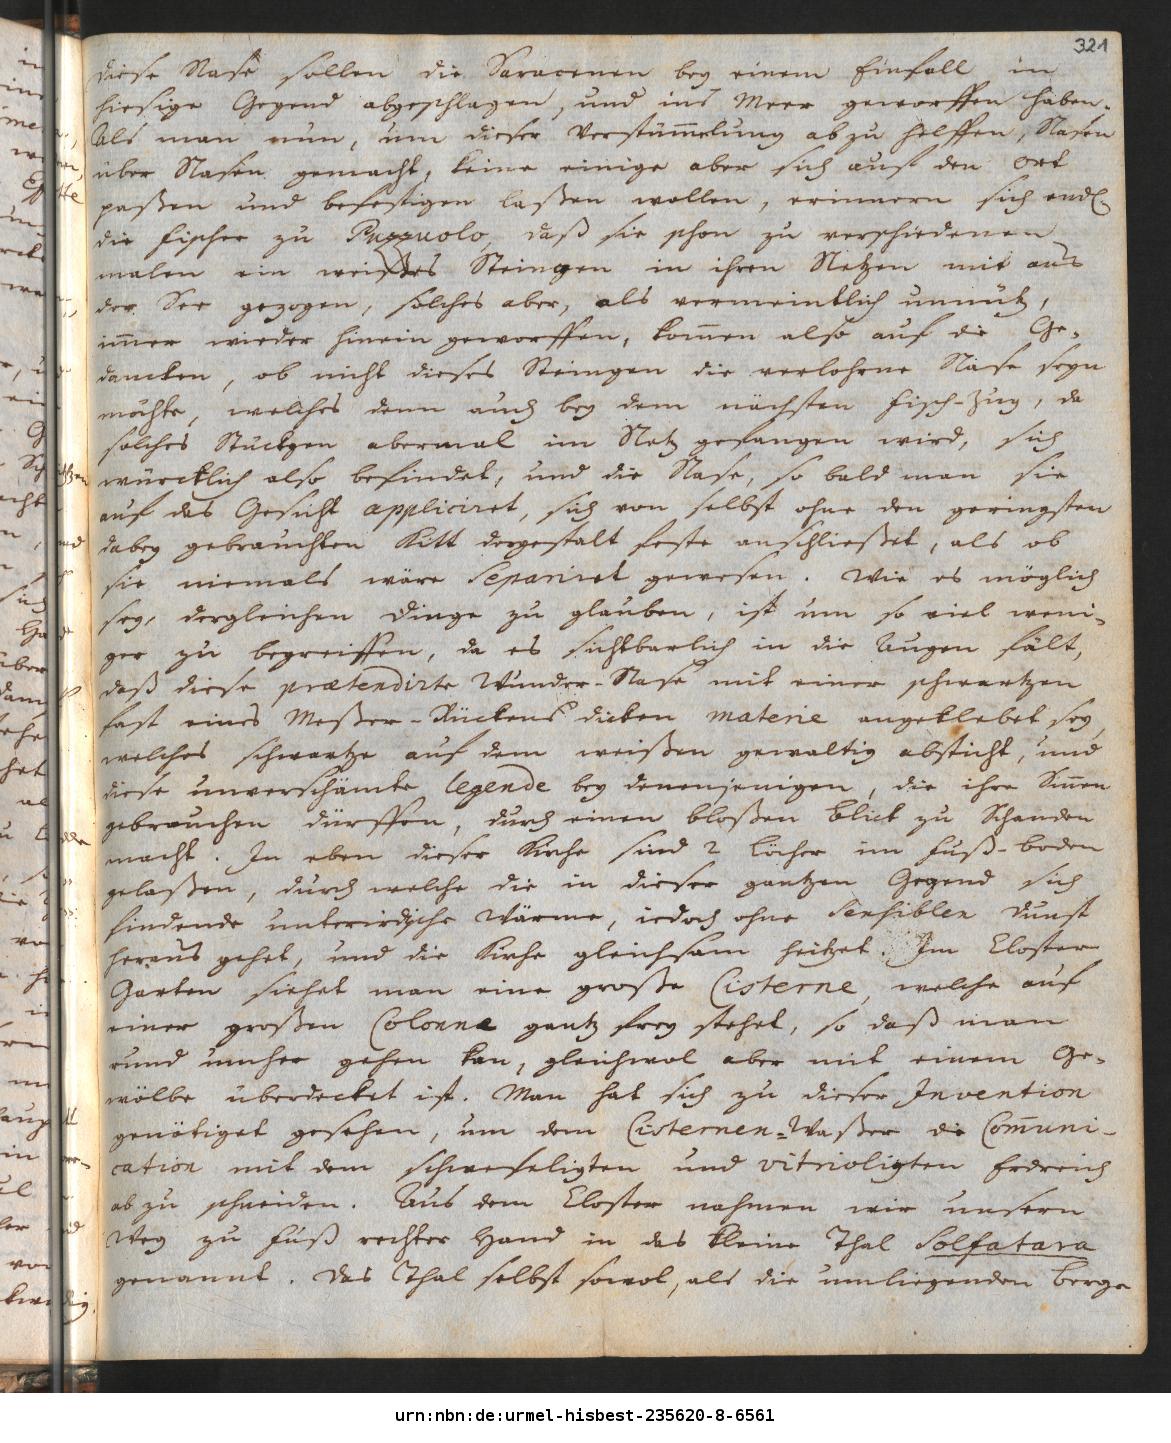 321
diese Nase sollen die Saracenen bey einem Einfall in
hiesige Gegend abgeschlagen, und ins Meer geworffen haben.
Als man nun, um dieser Verstüm̄elung ab zu helffen, Nasen
über Nasen gemacht, keine einige aber sich auf den Ort
paßen und befestigen laßen wollen, erinnern sich endl.
die Fischer zu Puzzuolo, daß sie schon zu verschiedenen
malen ein weißes Steingen in ihren Netzen mit aus
der See gezogen, solches aber, als vermeintlich unnütz,
im̄er wieder hinein geworffen, kom̄en also auf die Ge-
dancken, ob nicht dieses Steingen die verlohrne Nase seyn
möchte, welches denn auch bey dem nächsten Fisch-Zug, da
solches Stückgen abermal im Netz gefangen wird, sich
würcklich also befindet, und die Nase, so bald man sie
auf das Gesicht appliciret, sich von selbst ohne den geringsten
dabey gebrauchten Kitt dergestalt feste anschließet, als ob
sie niemals wäre separiret gewesen. Wie es möglich
sey, dergleichen Dinge zu glauben, ist um so viel weni-
ger zu begreiffen, da es sichtbarlich in die Augen fält,
daß diese prætendirte Wunder-Nase mit einer schwartzen
fast eines Meßer-Rückens dicken materie angeklebet sey,
welches schwartze auf dem weißen gewaltig absticht, und
diese unverschämte legende bey denenjenigen, die ihre Sin̄en
gebrauchen dürffen, durch einen bloßen Blick zu Schanden
macht. In eben dieser Kirche sind 2 Löcher im Fuß-boden
gelaßen, durch welche die in dieser gantzen Gegend sich
findende unterirdische Wärme, iedoch ohne sensiblen Dunst
heraus gehet, und die Kirche gleichsam heitzet. Im Closter
Garten siehet man eine große Cisterne, welche auf
einer großen Colonne gantz frey stehet, so daß man
rund umher gehen kan, gleichwol aber mit einem Ge-
wölbe überdecket ist. Man hat sich zu dieser Invention
genötiget gesehen, um dem Cisternen-Waßer die Com̄uni-
cation mit dem schwefeligten und vitrioligten Erdreich
ab zu schneiden. Aus dem Closter nahmen wir unsern
Weg zu Fuß rechter Hand in das kleine Thal Solfatara
genannt. Das Thal selbst sowol, als die umliegenden Berge
urn:nbn:de:urmel-hisbest-235620-8-6561